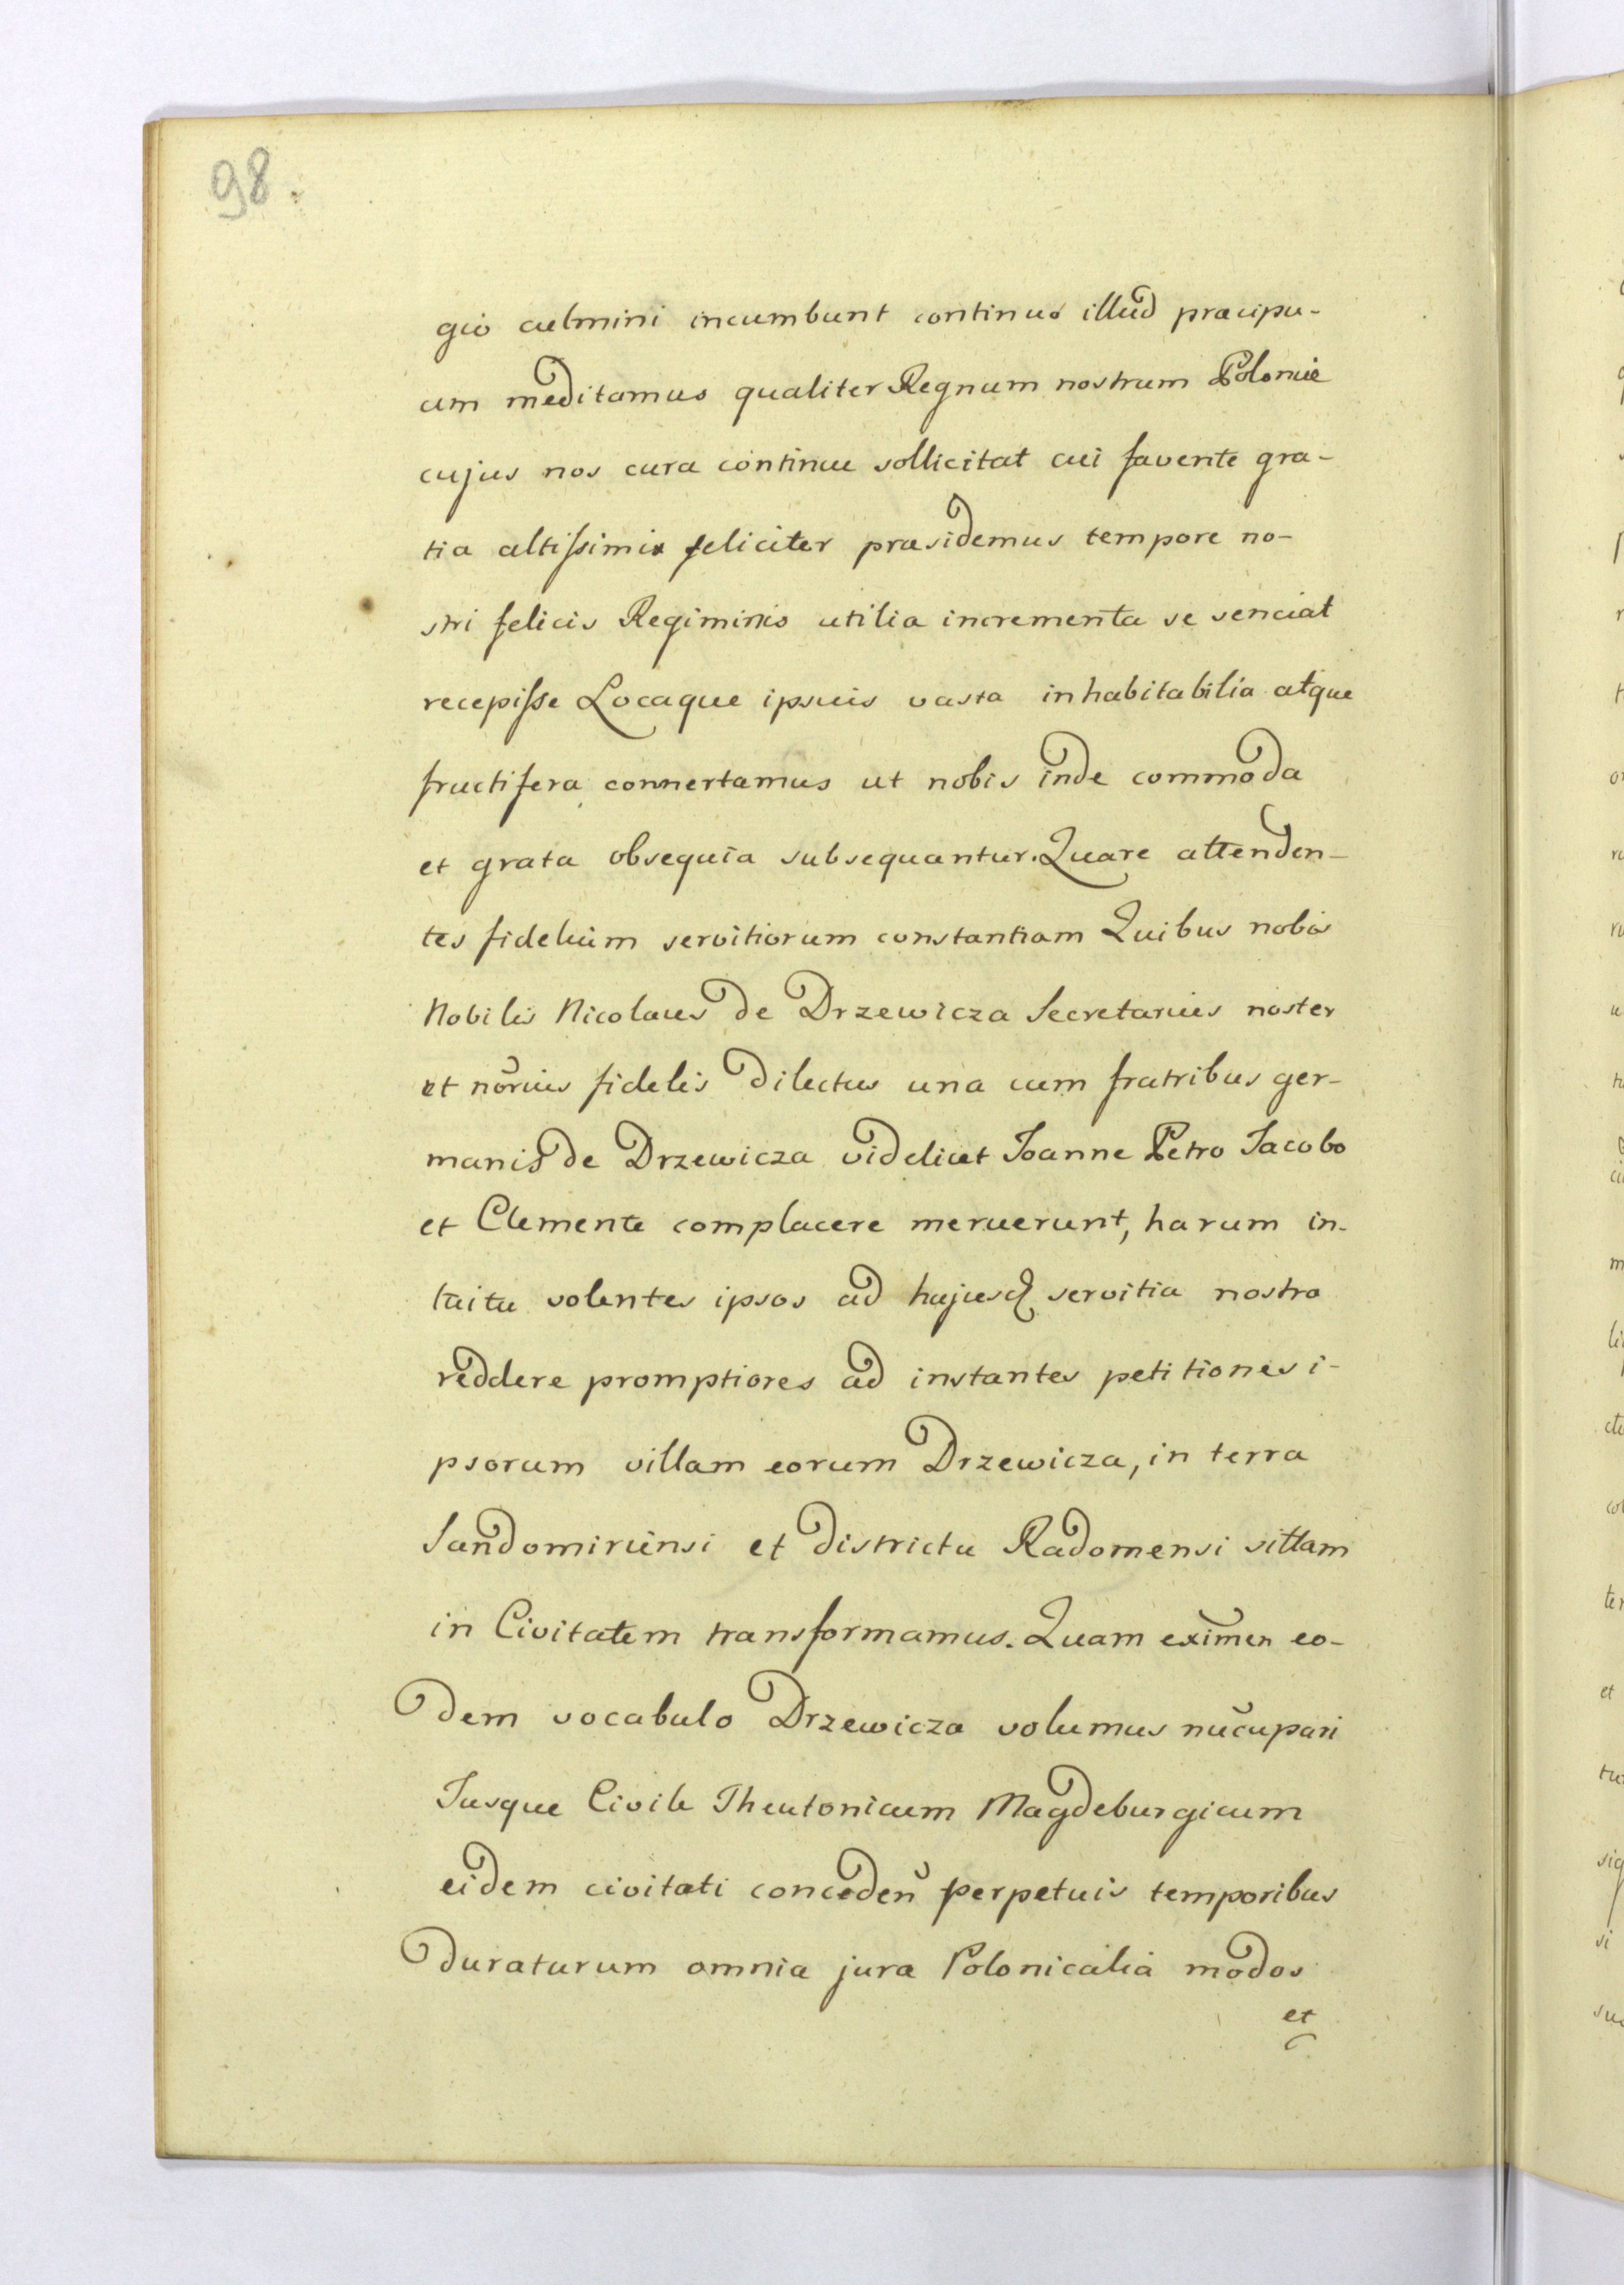 98.
gio culmini incumbunt continuo illud præcipu-
um meditamus qualiter Regnum nostrum Polonie
cujus nos cura continue sollicitat cui favente gra-
tia altiſsimi feliciter præsidemus tempore no-
stri felicis Regiminis utilia incrementa se senciat
recepiſse Locaque ipsius vasta inhabitabilia atque
fructifera connertamus ut nobis inde commoda
et grata obsequia subsequantur. Quare attenden-
tes fidelium servitiorum constantiam Quibus nobis
Nobilis Nicolaus de Drzewicza Secretarius noster
et nōrius fidelis dilectus una cum fratribus ger-
manis de Drzewicza videlicet Joanne Petro Jacobo
et Clemente complacere meruerunt, harum in-
tuitu volentes ipsos ad servitia nostra
reddere promptiores ad instantes petitiones i-
psorum villam eorum Drzewicza, in terra
Sandomiriensi et districtu Radomensi sittam
in Civitatem transformamus. Quam eo-
dem vocabulo Drzewicza volumus nūcupari
Jusque Civile Theutonicum Magdeburgicum
eidem civitati conceden̄ perpetuis temporibus
duraturum omnia jura Polonicalia modos
et